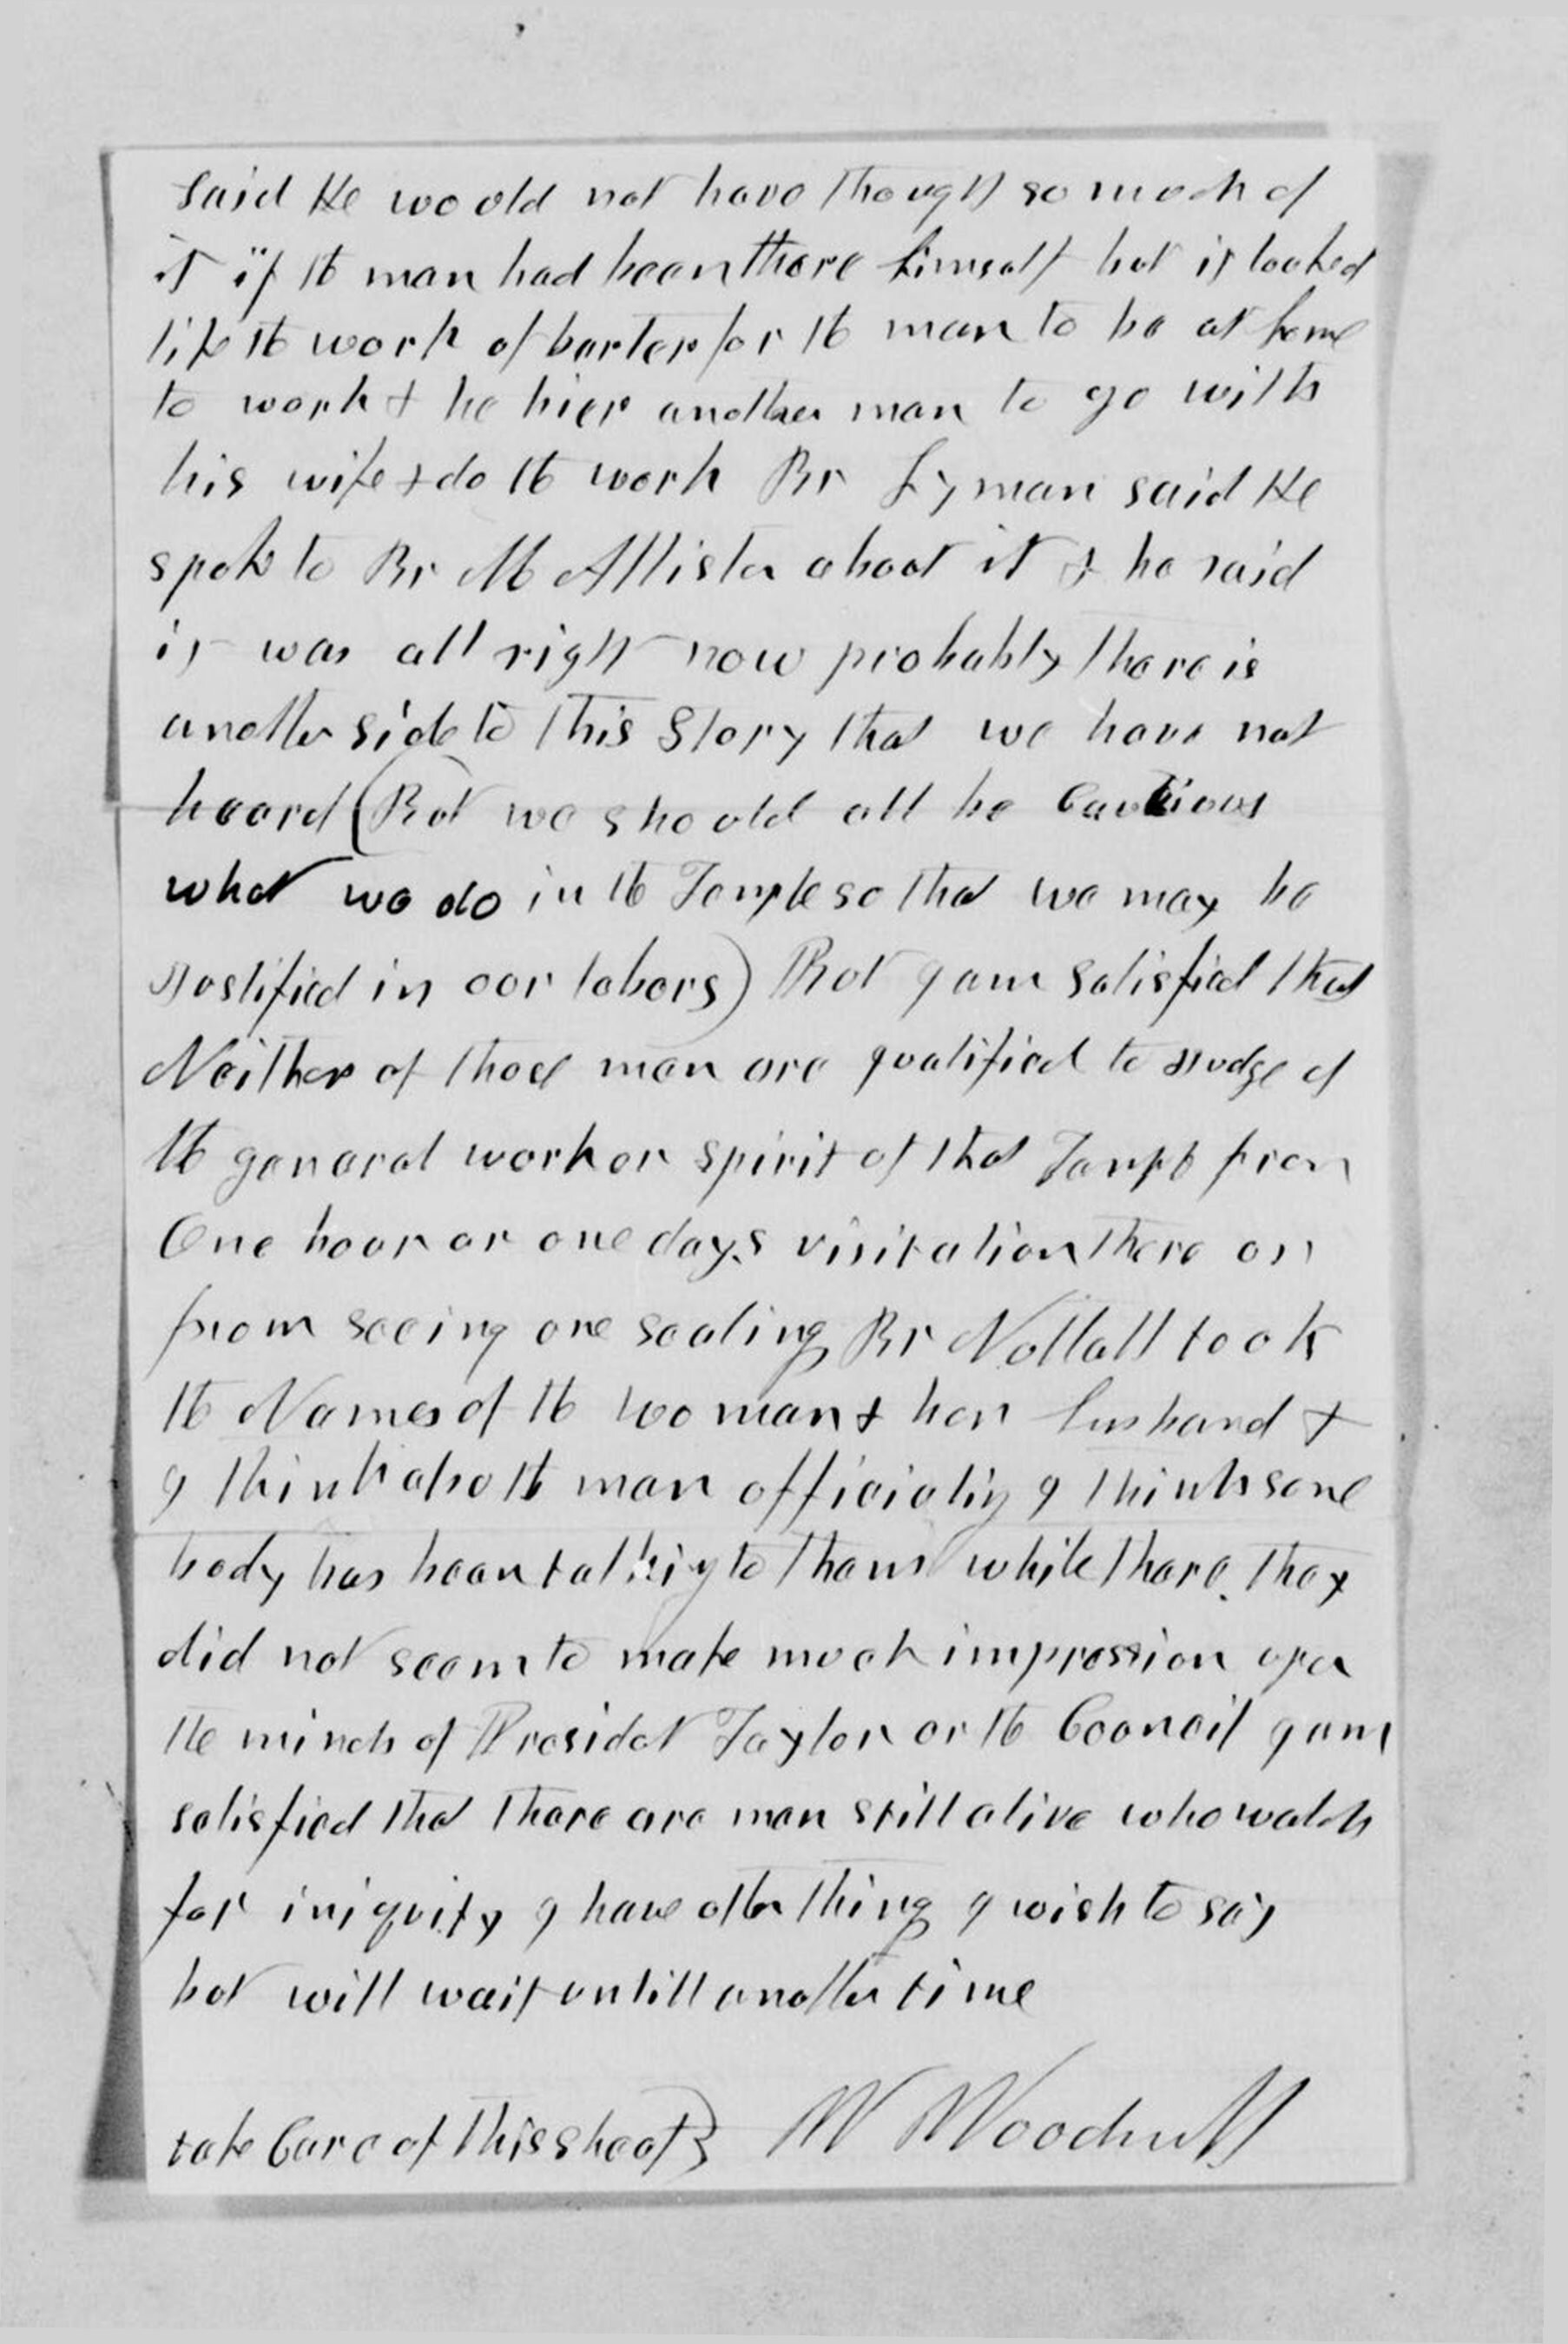 said He would not have thought so much of
it if the man had been there himself but it looked
like the work of barter for the man to be at home
to work & he hier another man to go with
his wife & do the work Br Lyman said He
spoke to Br McAllister about it & he said
it was all right now probably there is
another side to this Story that we have not
heard (But we should all be Cautious
what we do in the Temple so that we may be
Justified in our labors) But I am satisfied that
Neither of those men are qualified to Judge of
the general work or spirit of that Temple from
One hour or one days visitation there or
from seeing one sealing Br Nuttall took
the Names of the woman & her husband &
I think also the man officiating I think some
body has been talking to them while there. they
did not seem to make much impression upon
the minds of President Taylor or the Council I am
satisfied that there are men still alive who watch
for iniquity I have other thing I wish to say
but will wait untill another time
take Care of this sheet} W Woodruff